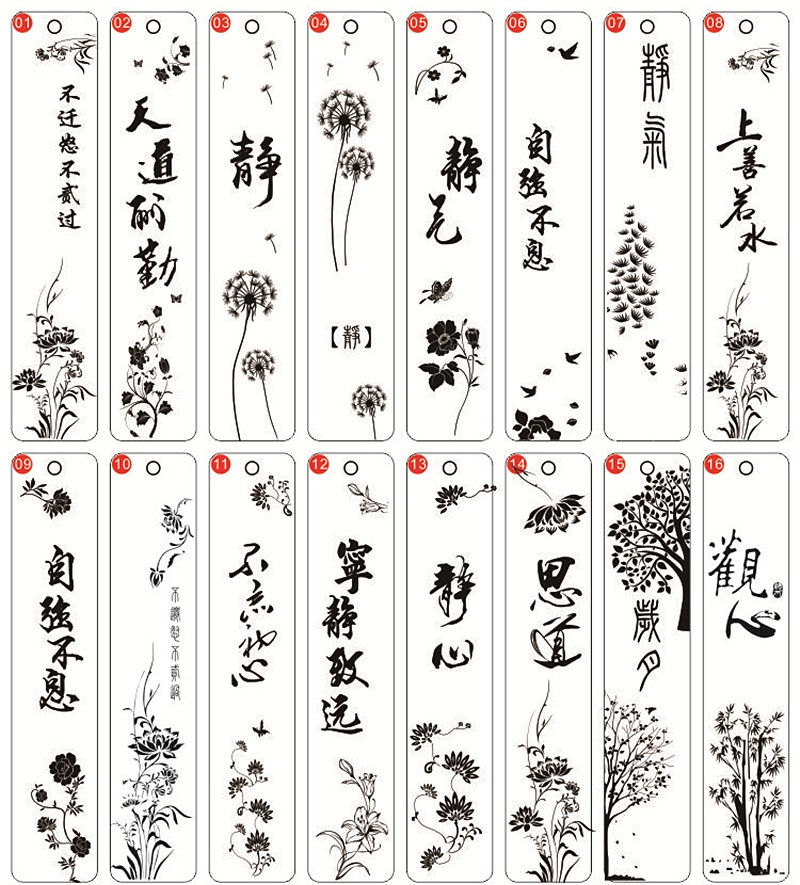 01
不迁怒不贰过
02
天道酬勤
03
静
04
【靜】
05
静气
06
自强不息
07
靜氣
08
上善若水
09
自强不息
10
不遷怒不貳過
11
不忘初心
12
寧静致远
13
静心
14
思道
15
歲月
16
觀心